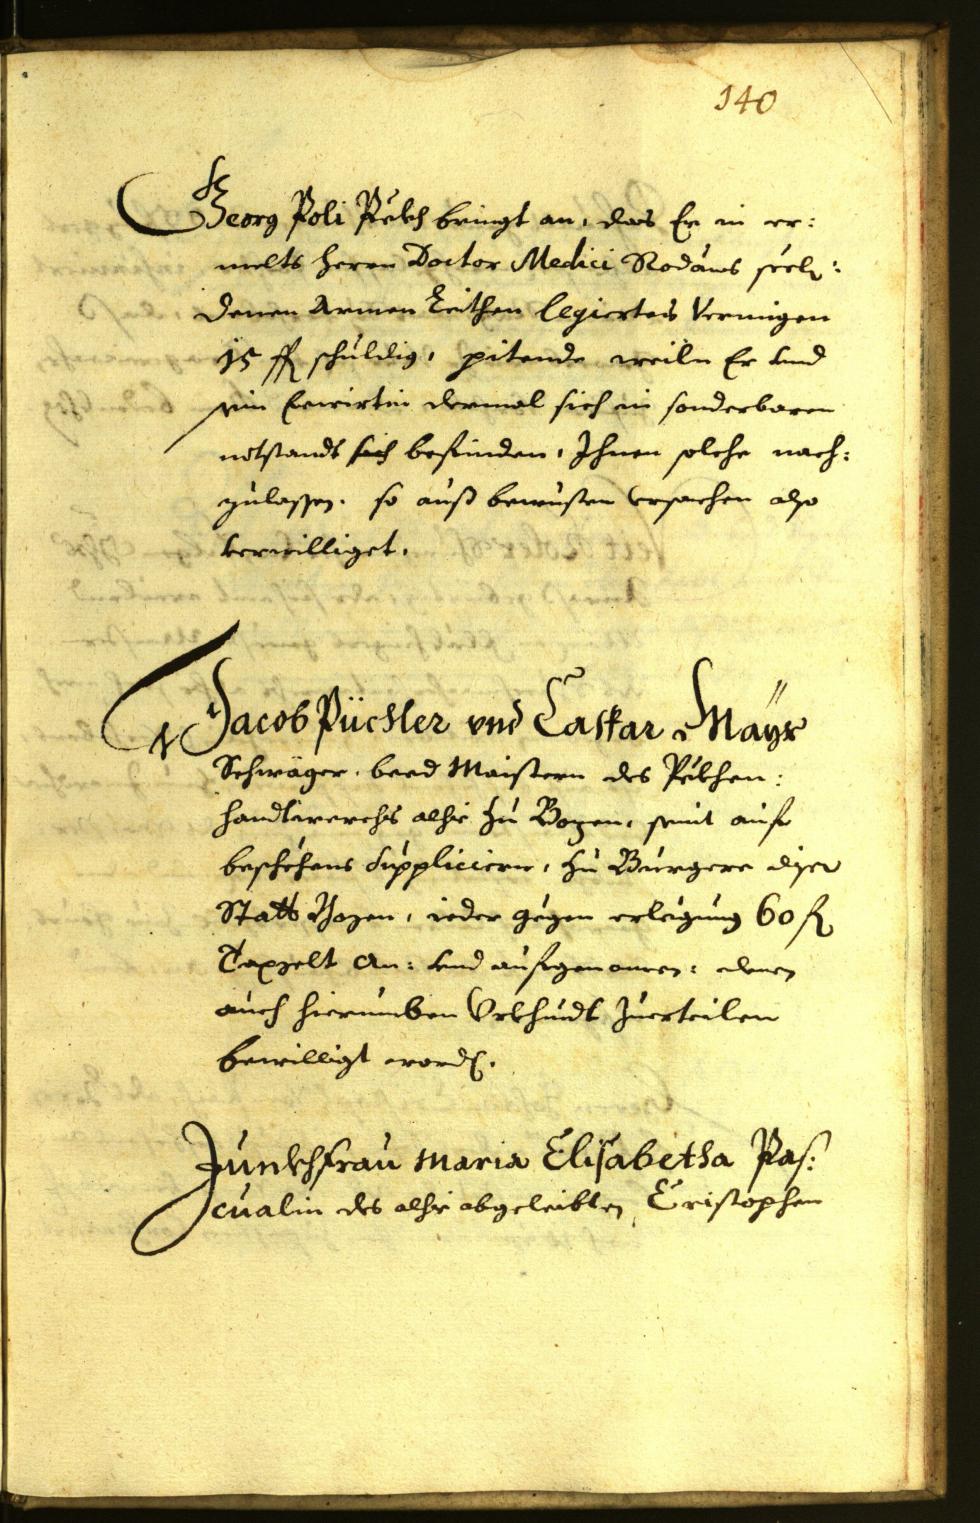 140
Georg Poli Pekh bringt an, das Er in er:
melts Herrn Doctor Medici Rodaus seel:
denen Armen Leithen legiertes Vermigen
15 fl schuldig, pitende weiln Er und
sein Ewirtin dermal sich in sonderbaren
notstands sich befünden, Ihnen solche nach:
zulassen. so auß bewusten Ursachen also
verwilliget.
Jacob Püchler vnd Caspar Mayr
Schwäger, beed Maistern des Pekhen:
handtwerchs alhie zu Bozen, seint auf
beschehens Suppliciern, zu Burgere diser
Statt Bozen, ieder gegen erlegung 60 fl
Taxgelt An: und aufgenomen: denen
auch hierumben Urkhundt zuerteilen
bewilligt worden.
Junckhfrau Maria Elisabetha Pas:
cualin des alhie abgeleibten Cristophen